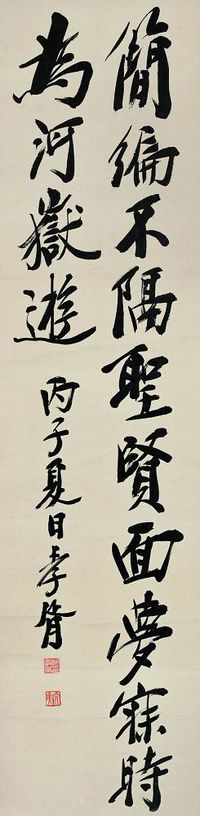 簡編不隔聖賢面夢寐時
為河嶽遊
丙子夏日孝胥